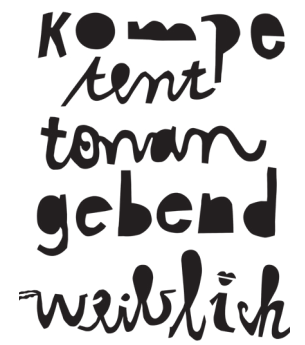 Kompe
tent
tonan
gebend
weiblich